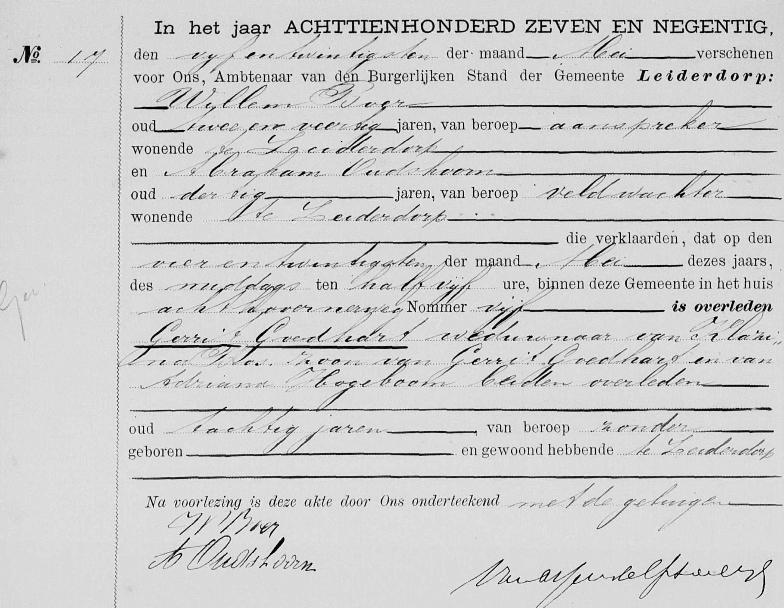 In het jaar ACHTTIENHONDERD ZEVEN EN NEGENTIG,
No. 17 den vyf en twintigsten der maand Mei verschenen
voor Ons, Ambtenaar van den Burgerlijken Stand der Gemeente Leiderdorp:
Wyllem Boer
oud twee en veertig jaren, van beroep aanspreker
wonende te Leiderdorp
en Abraham Oudshoorn
oud dertig jaren, van beroep veldwachter
wonende te Leiderdorp
die verklaarden, dat op den
vier en twintigsten der maand Mei dezes jaars,
des middags ten half vyf ure, binnen deze Gemeente in het huis
Nommer vyf is overleden
Gerrit Goedhart weduwnaar van Klazi-
na Vos. zoon van Gerrit Goedhart en van
Adriana Hogeboom beiden overleden
oud tachtig jaren, van beroep zonder
geboren en gewoond hebbende te Leiderdorp
Na voorlezing is deze akte door Ons onderteekend met de getuigen
W Boer
A Oudshoorn